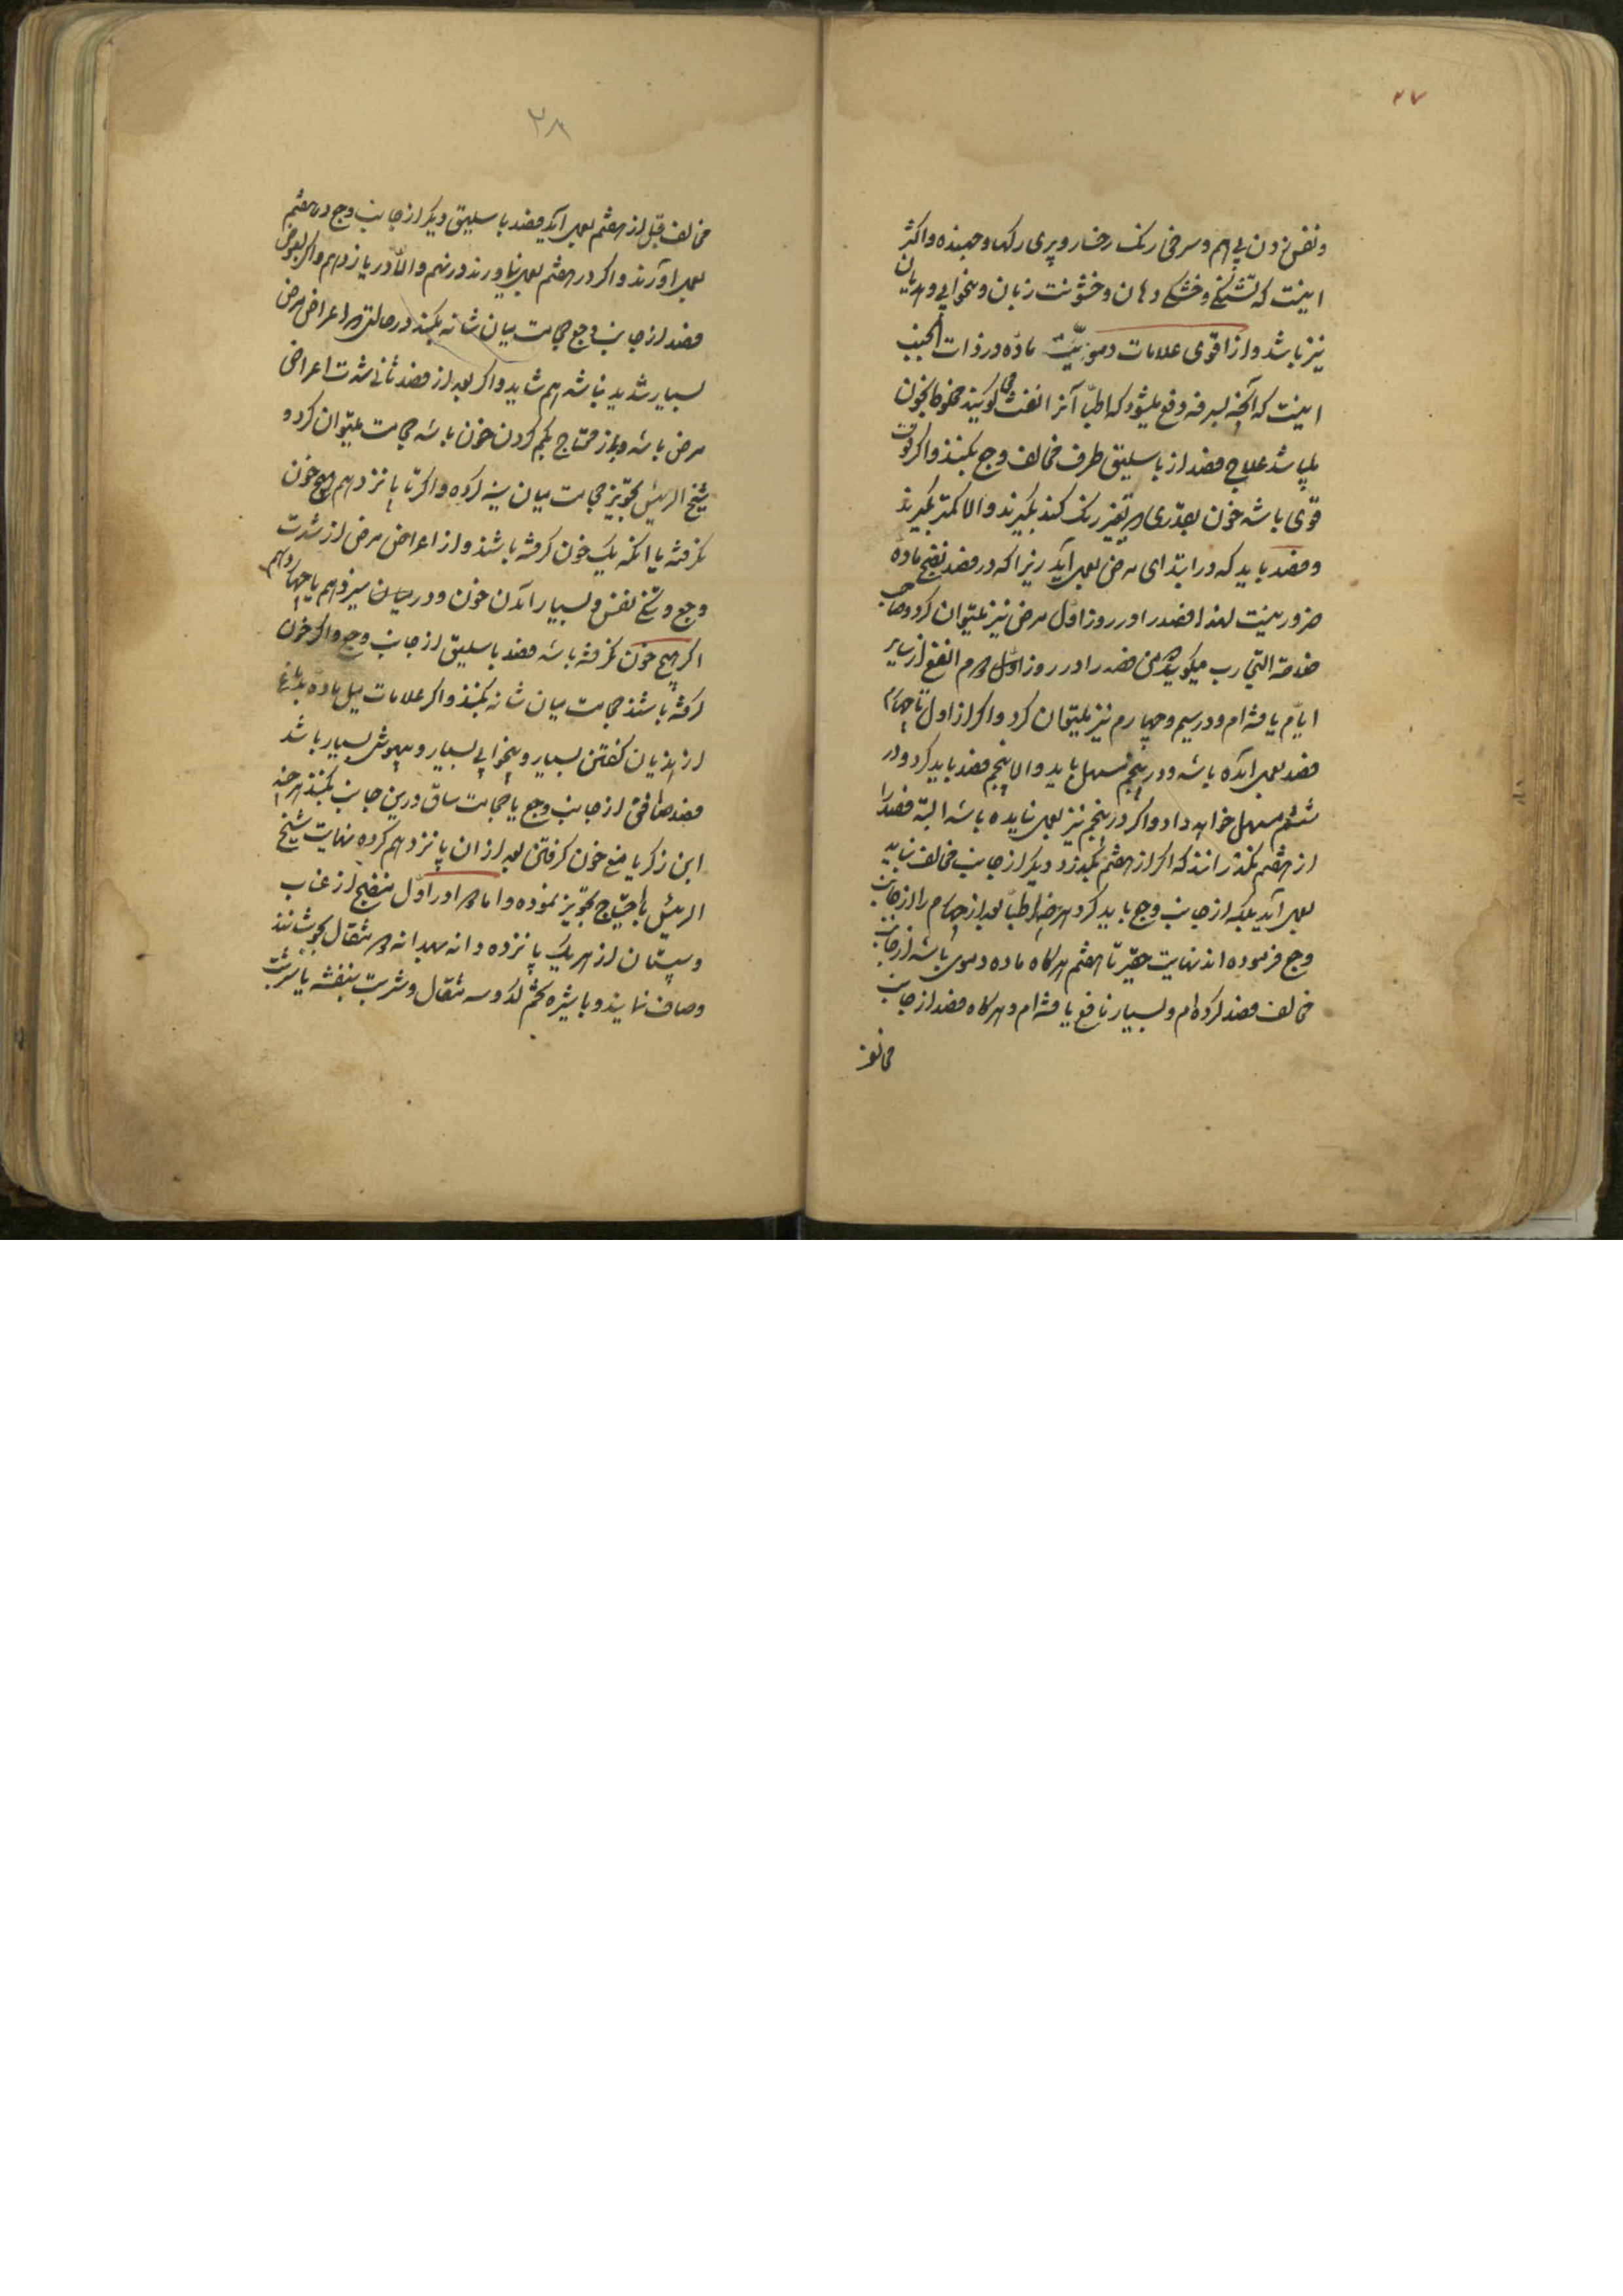 ۲۷
و نفس زدن پی هم و سرخی رنک رخسار و پری رکها و جهنده و اکثر
اینست که تشنکی و خشکی دهان و خشونت زبان و بیخوابی و هذیان
نیز باشد و از اقوی علامات دمویّت مادّه در ذات الجنب
اینست که آنچه بسرفه دفع میشود که اطبّا آنرا نفث کویند مخلوط بخون
میباشد علاج فصد از باسلیق طرف مخالف وجع بکنند و اکر قوت
قوی باشد خون بقدری که تغیر رنک کند بکیرند والا کمتر بکیرند
و فصد باید که در ابتدای مرض بعمل آید زیرا که در فصد نضج ماده
ضرور نیست لهذا فصد را در روز اول مرض نیز میتوان کرد و صاحب
خلاصة التجارب میکوید که من فصد را در روز اول و دوم انفع از سایر
ایّام یافته ام و در سیم و چهارم نیز میتوان کرد و اکر از اول تا چهارم
فصد بعمل آمده باشد و در پنجم مسهل باید والا پنجم فصد باید کرد و در
ششم مسهل خواهد داد و اکر در پنجم نیز بعمل نیامده باشد البته فصد را
از هفتم نکذرانند که اکر از هفتم بکذرد دیکر از جانب مخالف نباید
بعمل آید بلکه از جانب وجع باید کرد هرچند اطبّا بعد از چهارم را از جانب
وجع فرموده اند نهایت حقیر تا هفتم هرکاه ماده دموی باشد از جانب
مخالف فصد کرده ام و بسیار نافع یافته ام و هرکاه فصد از جانب
مخالف
۲۸
مخالف قبل از هفتم بعمل آید فصد باسلیق دیکر از جانب وجع در هفتم
بعمل آورند و اکر در هفتم بعمل نیاورند در نهم والّا در یازدهم و اکر بعوض
فصد از جانب وجع حجامت میان شانه بکنند در حالتی که اعراض مرض
بسیار شدید نباشد هم شاید و اکر بعد از فصد ثانی شدت اعراض
مرض باشد و باز محتاج بکم کردن خون باشد حجامت میتوان کرد و
شیخ الرئیس تجویز حجامت میان سینه کرده و اکر تا پانزدهم هیچ خون
نکرفته یا آنکه یک خون کرفته باشند و از اعراض مرض از شدت
وجع و تنک نفس و بسیار آمدن خون و در میان سیزدهم یا چهاردهم
اکر هیچ خون نکرفته باشد فصد باسلیق از جانب وجع و اکر خون
کرفته باشند حجامت میان شانه بکنند و اکر علامات میل ماده بدماغ
از هذیان کفتن بسیار و بیخوابی بسیار و بیهوشی بسیار باشد
فصد صافن از جانب وجع یا حجامت ساق در این جانب بکنند هرچند
ابن زکریا منع خون کرفتن بعد از ان پانزدهم کرده نهایت شیخ
الرئیس باحتیاج تجویز نموده و اما دوا در اوّل منضج از عناب
و سپستان از هر یک پانزده دانه بهدانه دو مثقال بجوشانند
و صاف نمایند و با شیره تخم کدو سه مثقال و شربت بنفشه یا شربت